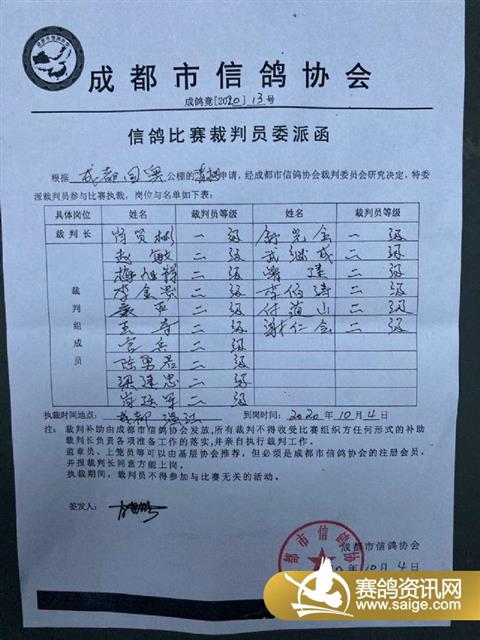 成都市信鸽协会
成鸽竞[2020]13号
信鸽比赛裁判员委派函
根据 成都国奥公棚的 申请，经成都市信鸽协会裁判委员会研究决定，特委
派裁判员参与比赛执裁，岗位与名单如下表：
具体岗位 姓名 裁判员等级 姓名 裁判员等级
裁判长 一级 一级
裁判组成员 赵敏 二级 二级
二级 二级
李金 二级 李伯涛 二级
二级 付 山 二级
王 二级 谢仁金 二级
二级
陈 二级
梁建忠 二级
二级
执裁时间地点： 成都 温江 到岗时间： 2020年10月4日
注： 裁判补助由成都市信鸽协会发放，所有裁判不得收受比赛组织方任何形式的补助
裁判长负责各项准备工作的落实，并亲自执行裁判工作。
监章员、上笼员等可以由基层协会推荐，但必须是成都市信鸽协会的注册会员，
并报裁判长同意方能上岗。
执裁期间，裁判员不得参加与比赛无关的活动。
签发人：
成都市信鸽协会
年10月4日
成都市信鸽协会
赛鸽资讯网
www.saige.com